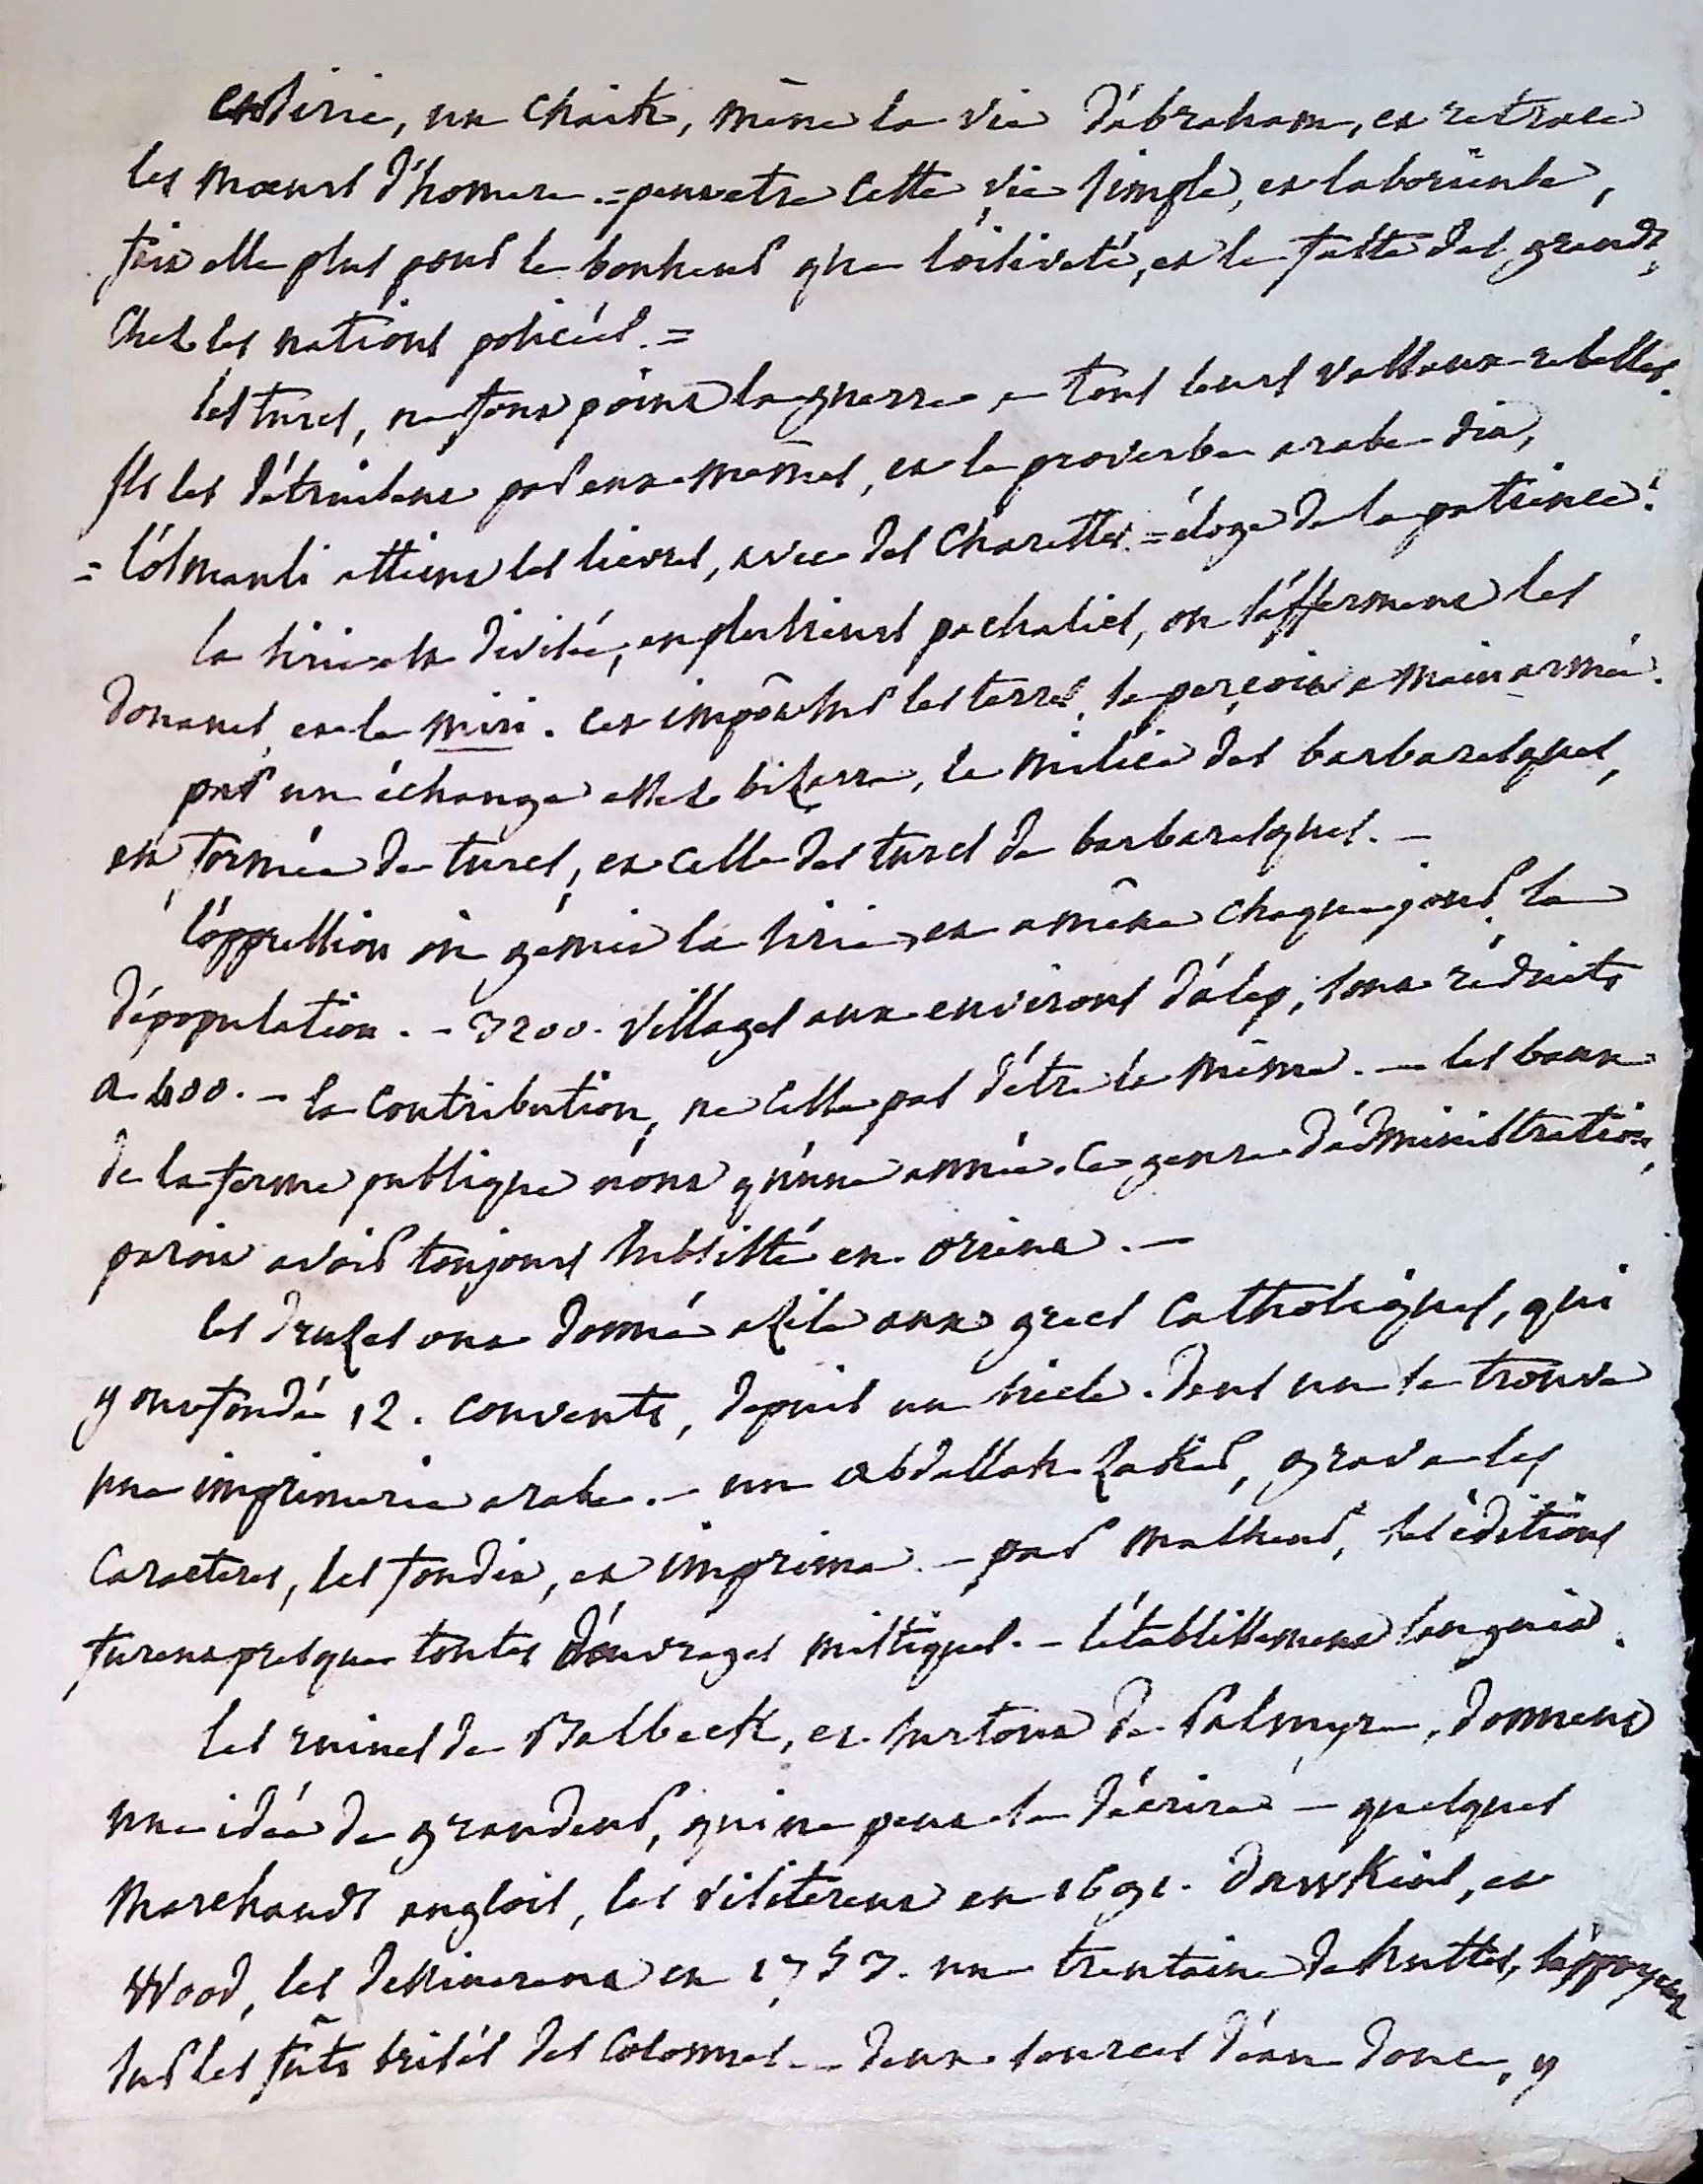 en sirie, un chaik, mène la vie d'abraham, et retrace
les mœurs d'homere. = peut etre cette vie simple, et laborieuse,
fait elle plus pour le bonheur que l'oisiveté, et le faste des grands,
chez les nations policées. =
les turcs, ne font point la guerre a tous leurs vassaux rebelles.
ils les détruisent par eux memes, et le proverbe arabe dit,
= l'osmanli atteint les lievres, avec des charettes. = éloge de la patience.
la sirie est divisée, en plusieurs pachalics, on s'afferment les
douanes, et le miri. cet impôt sur les terres, se perçoit a main armée.
par un échange assez bizarre, la milice des barbaresques,
est formée de turcs, et celle des turcs de barbaresques. -
l'oppression où gémit la sirie, en amène chaque jour, la
dépopulation. - 3200. villages aux environs d'alep, sont réduits
a 400. - la contribution, ne cesse pas d'être la même. - les baux
de la ferme publique n'ont qu'une année. ce genre d'administration,
paroit avoir toujours subsisté en orient. -
les druzes ont donné azile aux grecs catholiques, qui
y ont fondé 12. couvents, depuis un siecle. dans un se trouve
une imprimerie arabe. - un abdallah zaker, grava les
caracteres, les fondit, et imprima. - par malheur, ses éditions
furent presque toutes d'ouvrages mistiques. - l'établissement languit.
les ruines de Balbeck, et surtout de Palmyre, donnent
une idée de grandeur, qui ne peut se décrire - quelques
marchands anglois, les visiterent en 1691. dawkins, et
Wood, les dessinerent en 1757. une trentaine de huttes, s'appuyent
sur les fûts brisés des colonnes. - deux sources d'eau douce, y